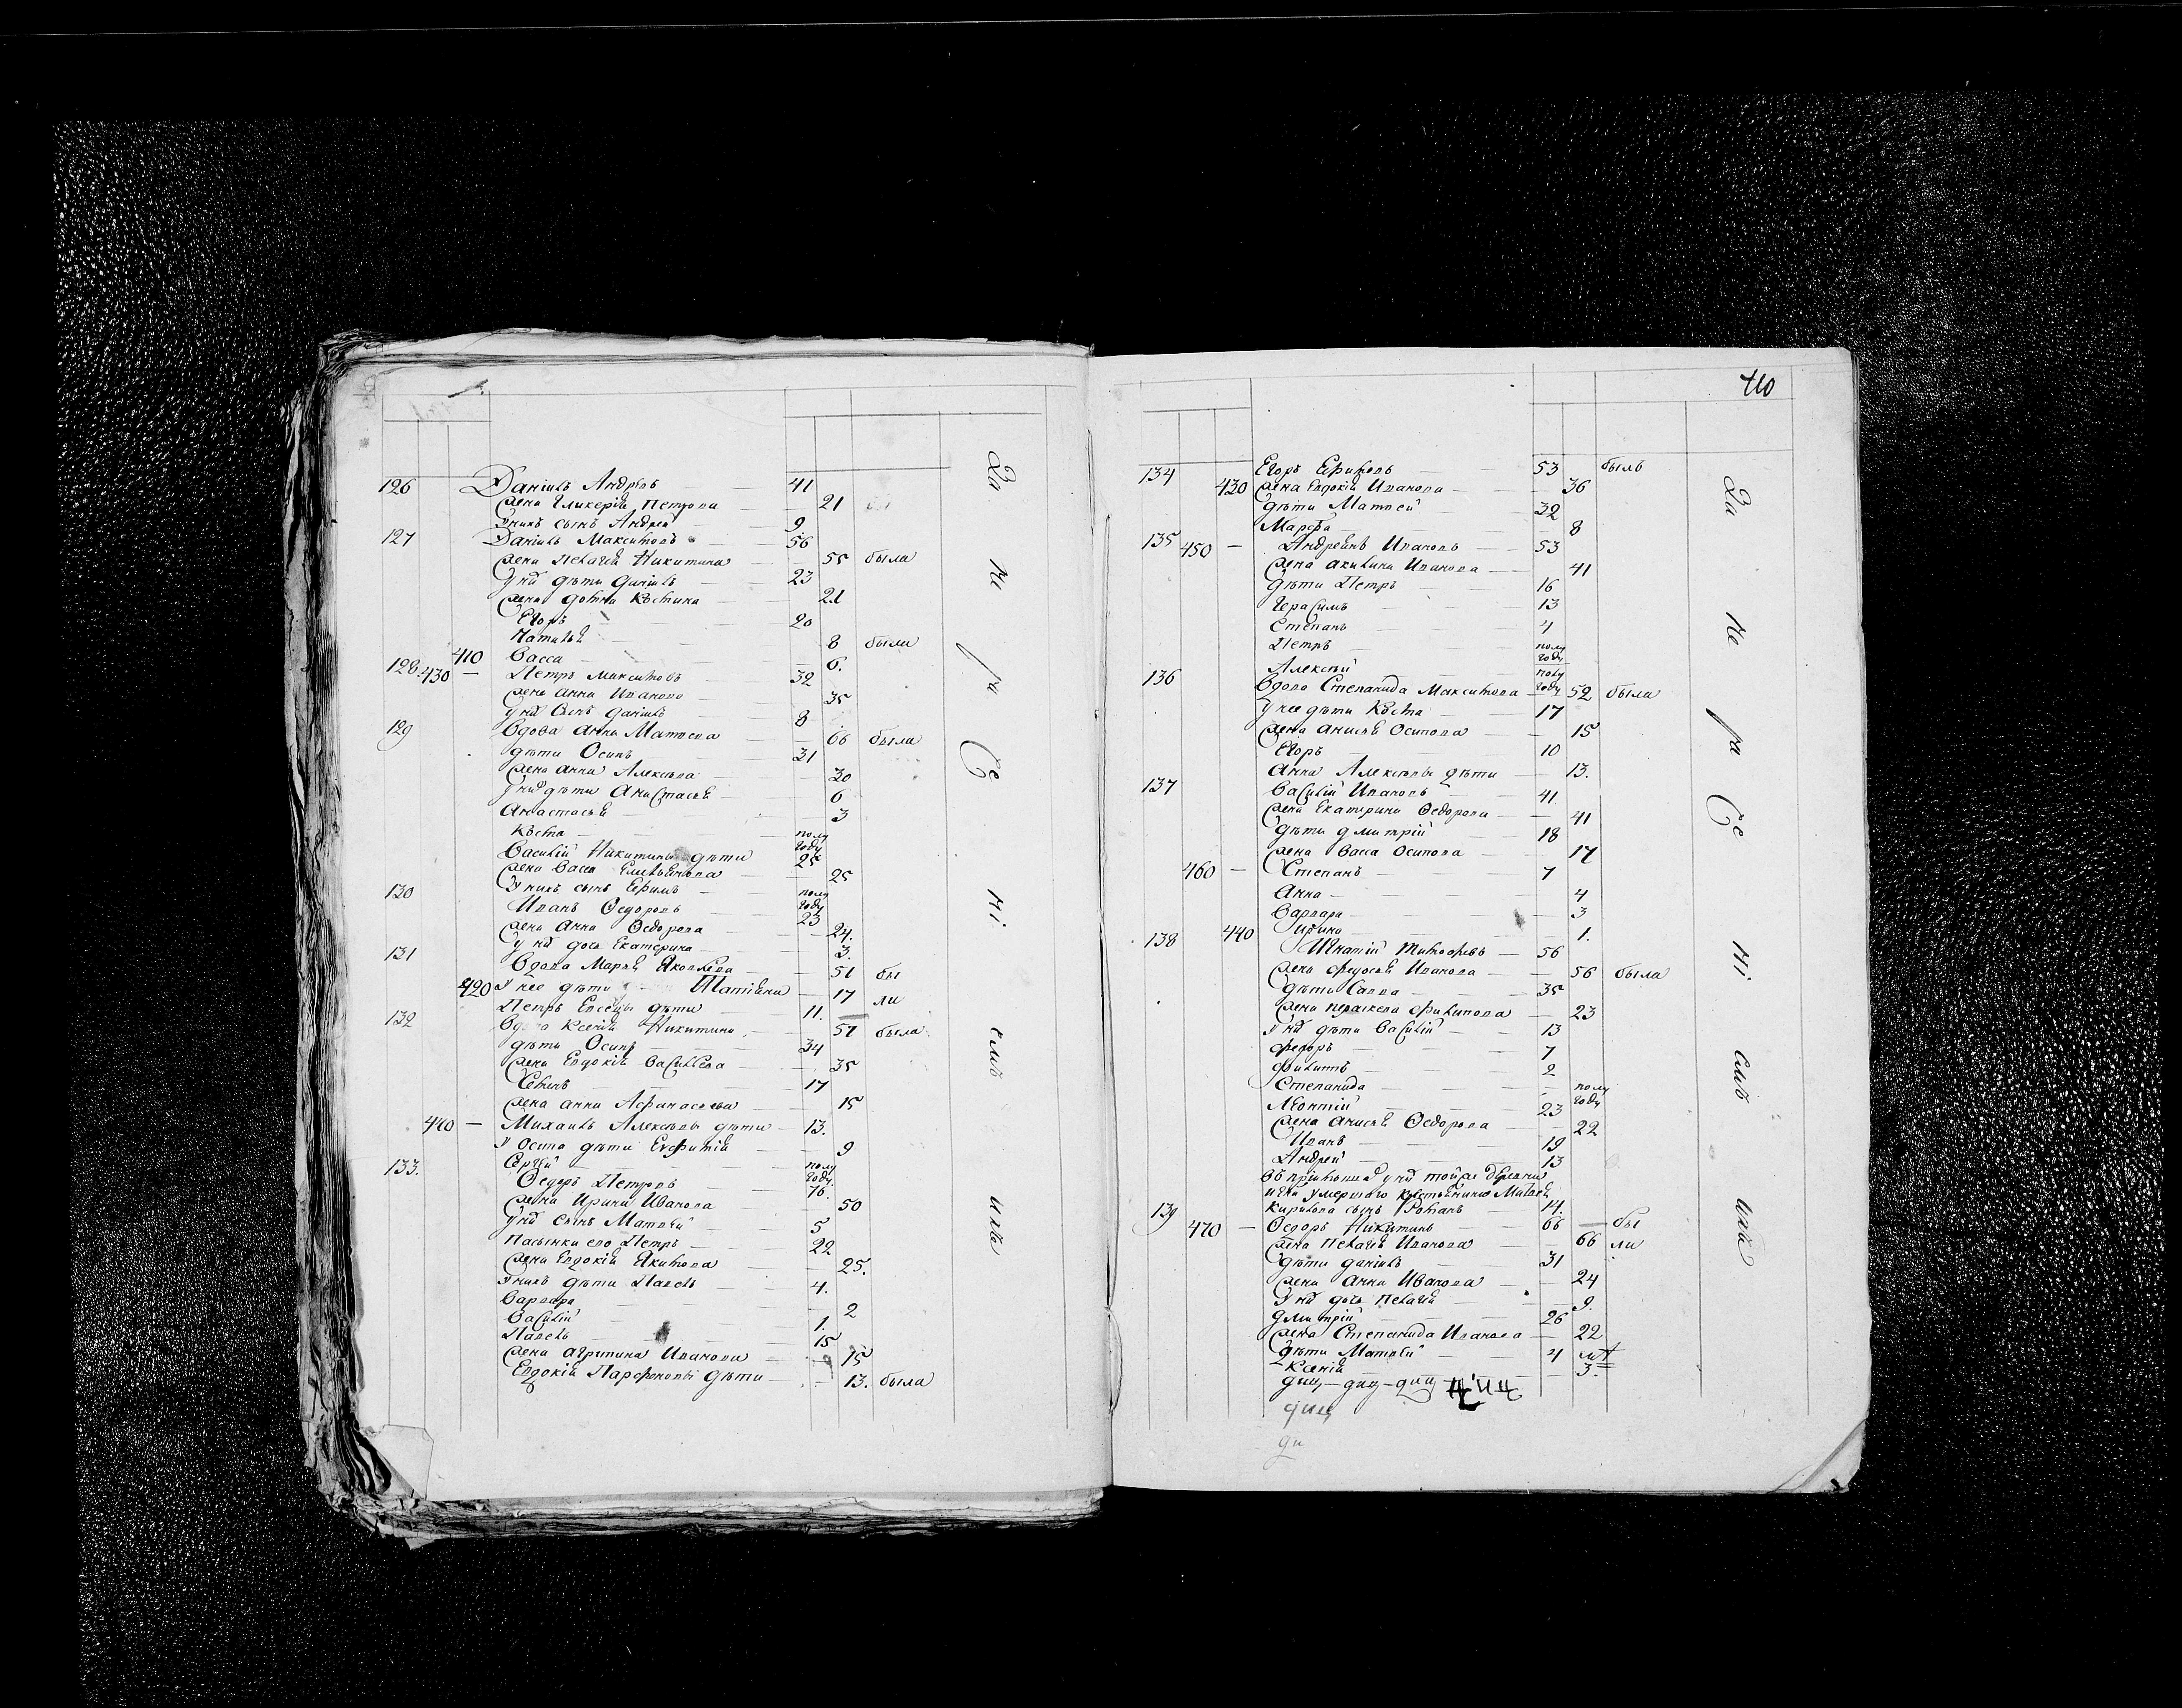 126 Даніилъ Андрѣевъ 41
жена Гликерія Петрова 21
У нихъ сынъ Андрей 9
127 Даніилъ Максимовъ 56
жена Пелагея Никитина 55 была
У нихъ дѣти Даніилъ 23
жена Козмина 21
Егоръ 20
Наталья 8 были
410 Васса 6.
128. 430 — Петръ Максимовъ 32
жена Анна Иванова 35
У нихъ сынъ Даніилъ 8
129 Вдова Анна Матвеева 66 была
дѣти Осипъ 31
жена Анна Алексѣева 30
У нихъ дѣти Анастасья 6
Анастасья 3
Козма полу году
Василій Никитины дѣти 25
жена Васса Емельянова 25
У нихъ сынъ Ефимъ полу году
130 Иванъ Ѳедоровъ 23
жена Анна Ѳедорова 24.
У нихъ дочь Екатерина 3.
131 Вдова Марья Яковлева 51 бы
420 У нее дѣти Татіяна 17 ли
Петръ Евсеевы дѣти 11.
132 Вдова Ксенія Никитина 57 была
дѣти Осипъ 34
жена Евдокія Васильева 35
17
жена Анна Афанасьева 15
440 — Михаилъ Алексѣевы дѣти 13.
У Осипа дѣти Евфимія 9
Сергѣй полу году
133. Ѳедоръ Петровъ 76.
жена Ирина Иванова 50
У нихъ сынъ Матвѣй 5
Пасынки его Петръ 22
жена Евдокія Якимова 25.
У нихъ дѣти Павелъ 4.
Варвара 2
Василій 1.
Павелъ 15
жена Агрипина Иванова 15
Евдокія Парфеновы дѣти 13. была
За не ра Се ні емъ ихъ
410
134 Егоръ Ефимовъ 53 былъ
430 жена Евдокія Иванова 36
дѣти Матвей 32
Марфа 8
135 450 — Андреянъ Ивановъ 53
жена Акилина Иванова 41
дѣти Петръ 16
Герасимъ 13
Степанъ 4
Петръ полу году
Алексѣй полу году
136 Вдова Степанида Максимова 52 была
У нее дѣти Козма 17
жена Анисья Осипова 15
Егоръ 10
Анна Алексѣевы дѣти 13.
137 Василій Ивановъ 41
жена Екатерина Ѳедорова 41
дѣти Дмитрій 18
жена Васса Осипова 17
460 — Степанъ 7
Анна 4
Варвара 3
440 Ирина 1.
138 Игнатій Тимофѣевъ 56
жена Федосья Иванова 56 была
дѣти Савва 35
жена Праскева Филипова 23
У нихъ дѣти Василій 13
Федоръ 7
Филипъ 2
Степанида полу году
Леонтій 23
жена Анисья Ѳедорова 22
Иванъ 19
Андрей 13
той же деревни
умершаго крестьянина
Кирилова сынъ Романъ 14.
139 470 — Ѳедоръ Никитинъ 66 — бы
жена Пелагея Иванова 66 ли
дѣти Даніилъ 31
жена Анна Иванова 24
У нихъ дочь Пелагея 9.
Дмитрій 26
жена Степанида Иванова 22
дѣти Матвѣй 4
Ксенія 3.
За не ра Се ні емъ ихъ